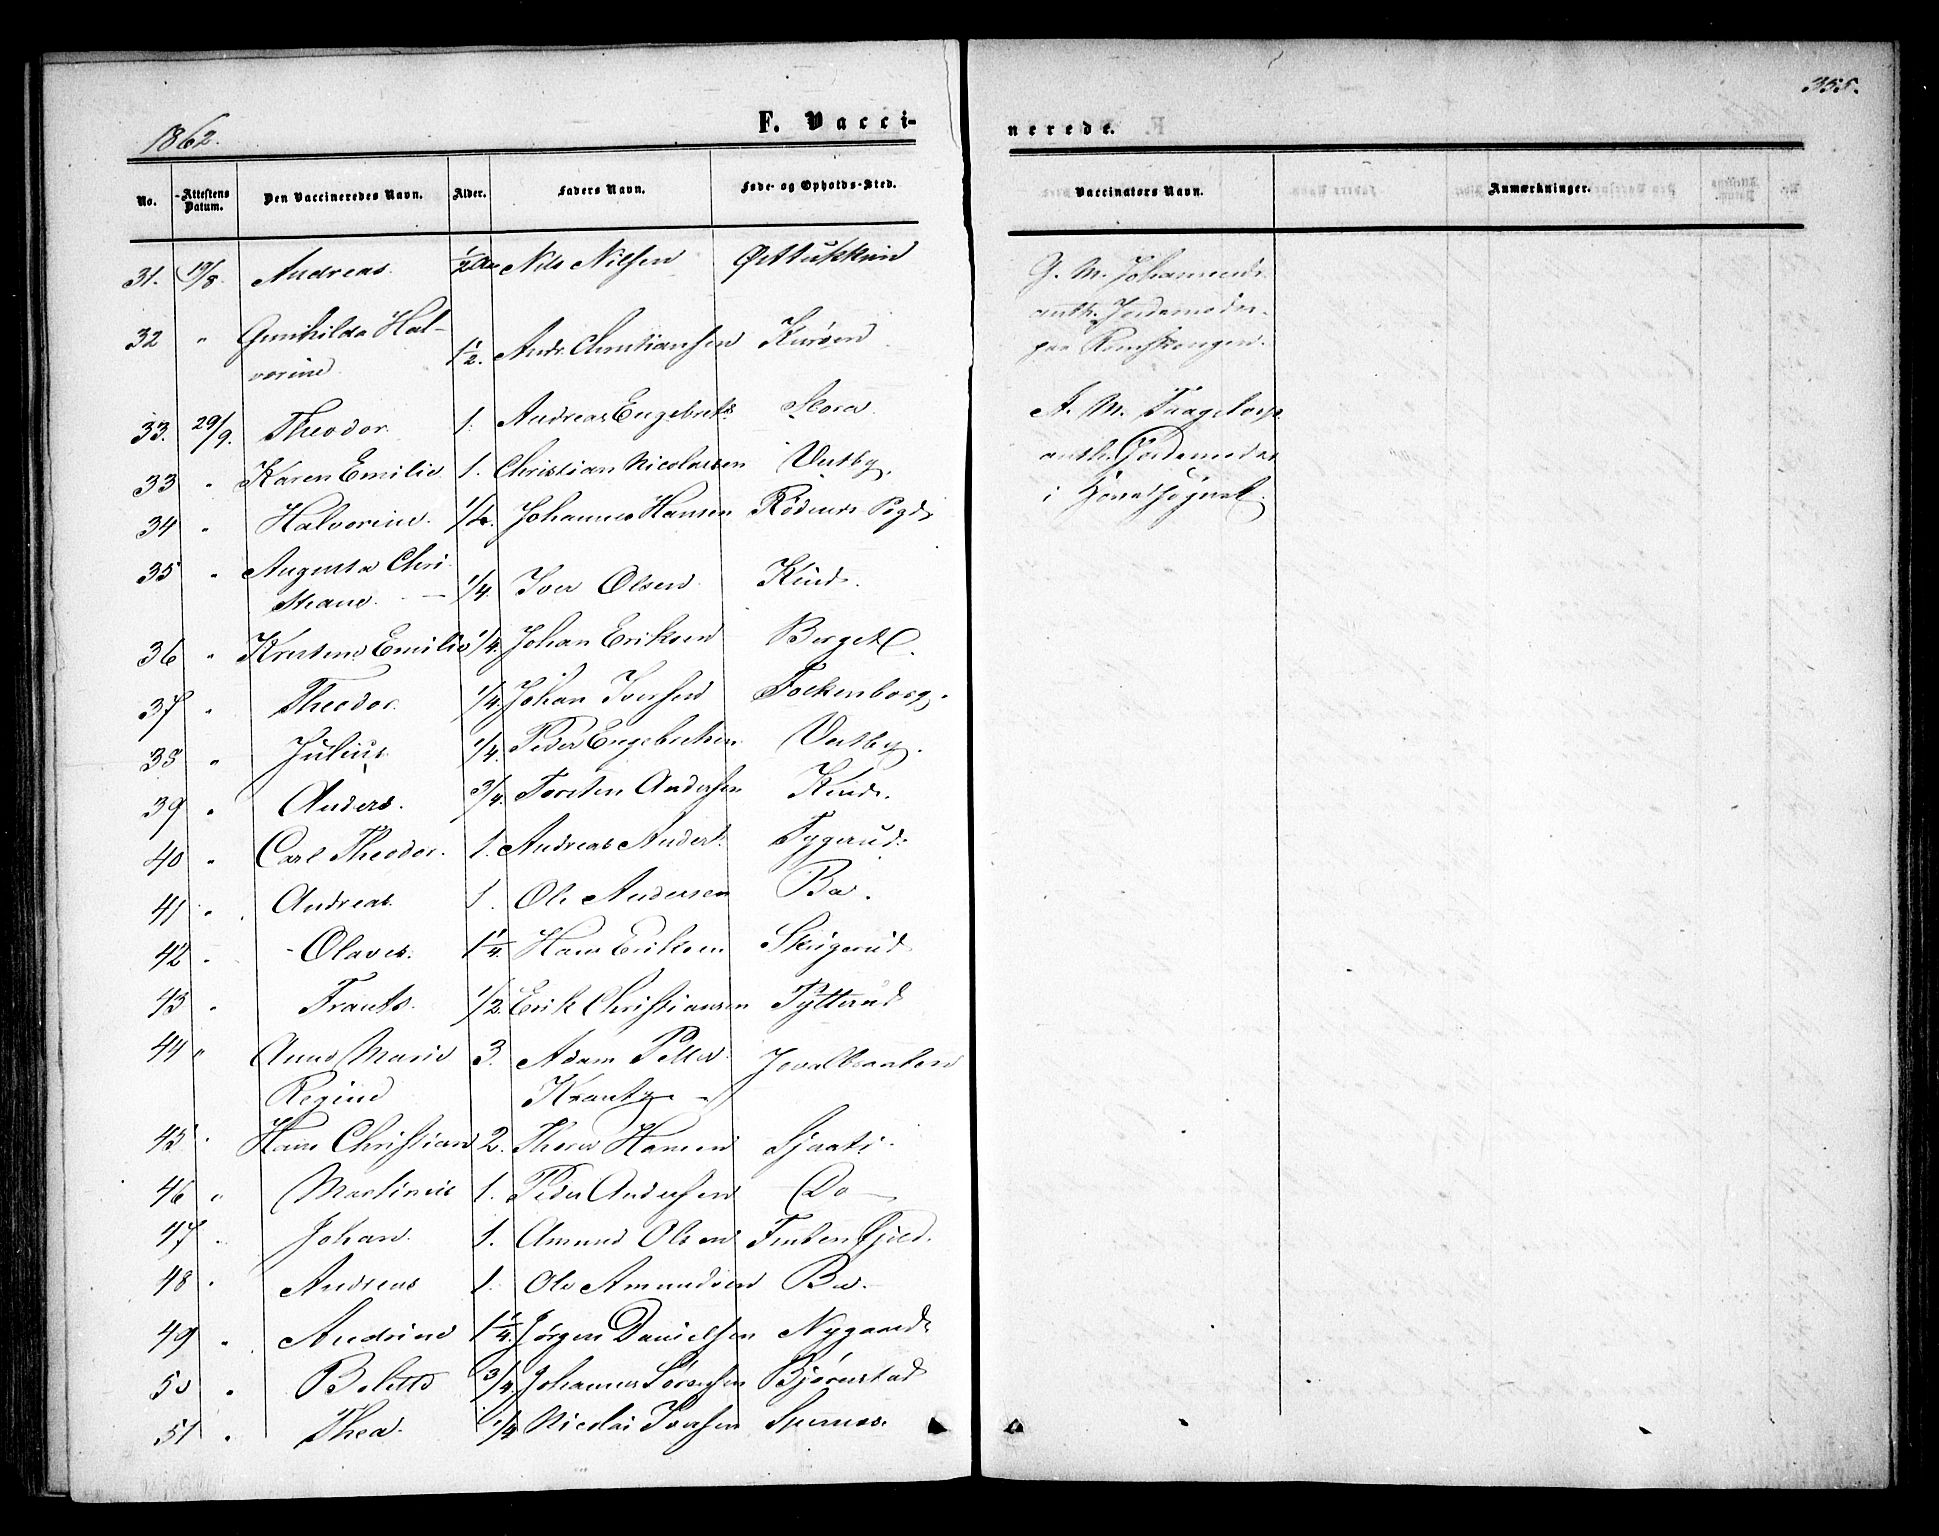 1862.
355.
F. Vacci-
nerede.
No. Attestens Datum. Den Vaccineredes Navn. Alder. Faders Navn. Føde- og Opholds-Sted. Vaccinators Navn. Anmærkninger.
31. 19/8. Andreas. 1/2 Aar Nils Nilsen
G. M. Johannesd.
32 " Gunhilde Hal-
vorine 1 1/2. Andr. Christiansen Kursen
auth. Jordemoder
paa Romskougen.
33. 29/9. Theodor. 1. Andreas Engebrets. Slora.
A. M.
33 " Karen Emilie 1. Christian Nicolaisen Vestby.
auth. Jordemoder
34 " Halvorine. 1/2. Johannes Hansen Rødenes Pgd.
i
35 " Augusta Chri-
stiane. 1/4. Iver Olsen Kinds.
36 " Kristine Emilie 1/4. Johan Eriksen Berget.
37 " Theodor. 1/4. Johan Iversen Fockenborg.
38 " Julius. 1/4. Peder Engebretsen Vestby.
39 " Anders. 3/4. Torsten Andersen Kinds.
40 " Carl Theodor. 1. Andreas Anders. Tygerud.
41 " Andreas. 1. Ole Andersen Bø.
42 " Olaves. 1 1/4. Hans Eriksen Skugerud
43 " Frants. 1/2. Erik Christiansen Tytterud
44 " Anne Marie 3. Adam Petter Jovalbraaten
Regine Krantz
45 " Hans Christian 2. Thora Hansen
46 " Martinius 1. Peder Andersen Do
47 " Johan. 1. Amund Olsen
48 " Andreas 1. Ole Amundsen Bø.
49 " Andrine 1 1/4. Jørgen Danielsen Nygaard.
50 " Bolette 3/4. Johannes Sørensen Bjørnstad
51 " Thea. 1/4 Nicolai Iversen